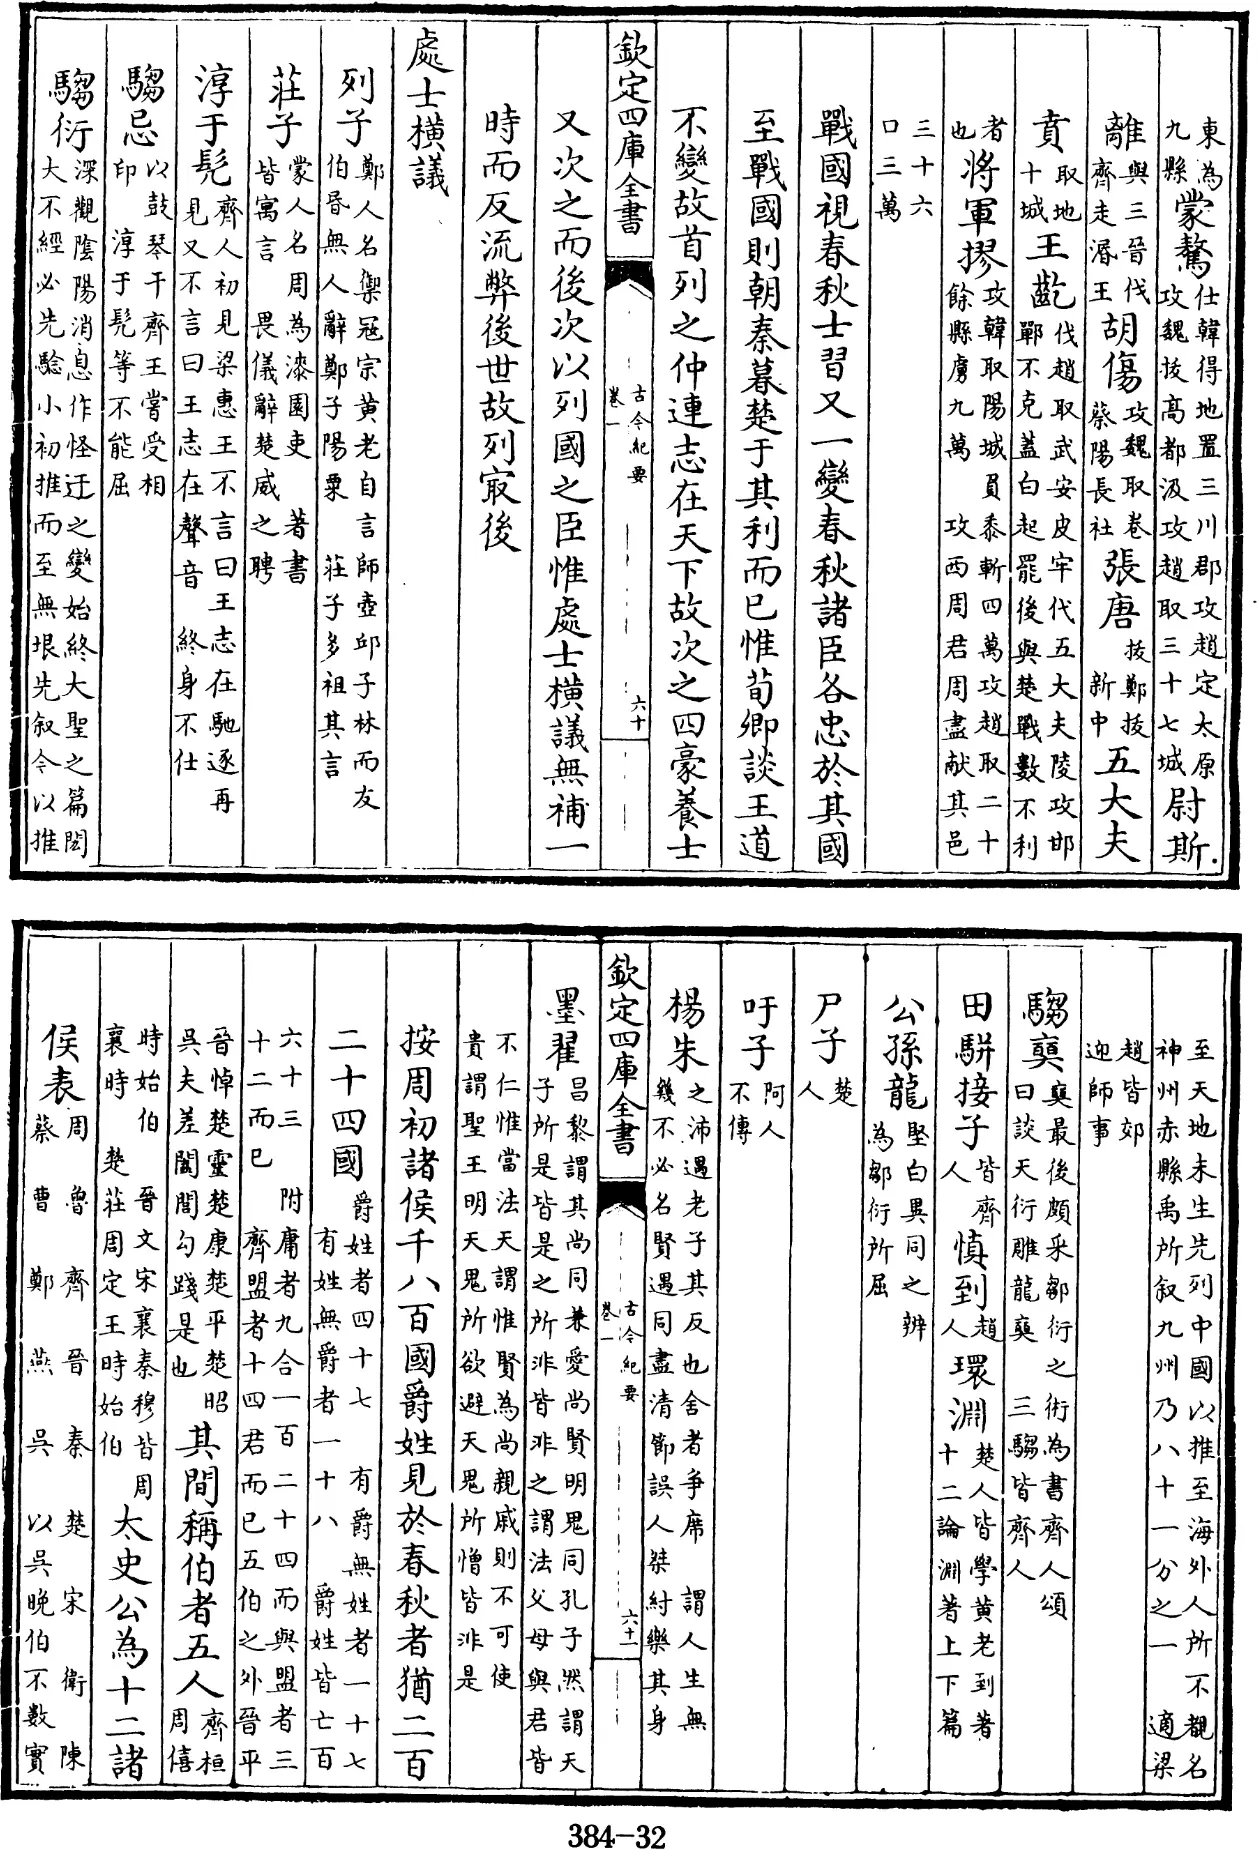 東為九縣蒙驁仕韓得地置三川郡攻趙定太原攻魏拔高都汲攻趙取三十七城尉斯
離與三晉伐齊走湣王胡傷攻魏取卷蔡陽長社張唐拔鄭拔新中五大夫
賁取地十城王齕伐趙取武安皮牢代五大夫陵攻邯鄲不克蓋白起罷後與楚戰數不利
者也將軍摎攻韓取陽城負黍斬四萬攻趙取二十餘縣虜九萬 攻西周君周盡献其邑
三十六口三萬
戰國視春秋士習又一變春秋諸臣各忠於其國
至戰國則朝秦暮楚于其利而已惟荀卿談王道
不變故首列之仲連志在天下故次之四豪養士
欽定四庫全書 古今紀要 卷一 六十
又次之而後次以列國之臣惟處士橫議無補一
時而反流弊後世故列㝡後
處士橫議
列子鄭人名禦冦宗黄老自言師壺邱子林而友伯昏無人辭鄭子陽粟 莊子多祖其言
莊子蒙人名周為漆園吏 著書皆寓言 畏儀辭楚威之聘
淳于髠齊人初見梁惠王不言曰王志在馳逐再見又不言曰王志在聲音 終身不仕
騶忌以鼓琴干齊王嘗受相印 淳于髠等不能屈
騶衍深觀陰陽消息作怪迂之變始終大聖之篇閎大不經必先驗小初推而至無垠先叙今以推
至天地未生先列中國以推至海外人所不覩名神州赤縣禹所叙九州乃八十一分之一 適梁
趙皆郊迎師事
騶奭奭最後頗采鄒衍之術為書齊人頌曰談天衍雕龍奭 三騶皆齊人
田駢接子皆齊人慎到趙人環淵楚人皆學黄老到著十二論淵著上下篇
公孫龍堅白異同之辨為鄒衍所屈
尸子楚人
吁子阿人不傳
楊朱之沛遇老子其反也舍者爭席 謂人生無幾不必名賢遇同盡清節誤人桀紂樂其身
欽定四庫全書 古今紀要 卷一 六十一
墨翟昌黎謂其尚同兼愛尚賢明鬼同孔子然謂天子所是皆是之所非皆非之謂法父母與君皆
不仁惟當法天謂惟賢為尚親戚則不可使貴謂聖王明天鬼所欲避天鬼所憎皆非是
按周初諸侯千八百國爵姓見於春秋者猶二百
二十四國爵姓者四十七 有爵無姓者一十七有姓無爵者一十八 爵姓皆亡百
六十三 附庸者九合一百二十四而與盟者三十二而已 齊盟者十四君而已五伯之外晉平
晉悼楚靈楚康楚平楚昭吳夫差闔閭勾踐是也其間稱伯者五人齊桓周僖
時始伯 晉文宋襄秦穆皆周襄時 楚莊周定王時始伯太史公為十二諸
侯表周 魯 齊 晉 秦 楚 宋 衛 陳 蔡 曹 鄭 燕 吳 以吳晚伯不數實
384-32